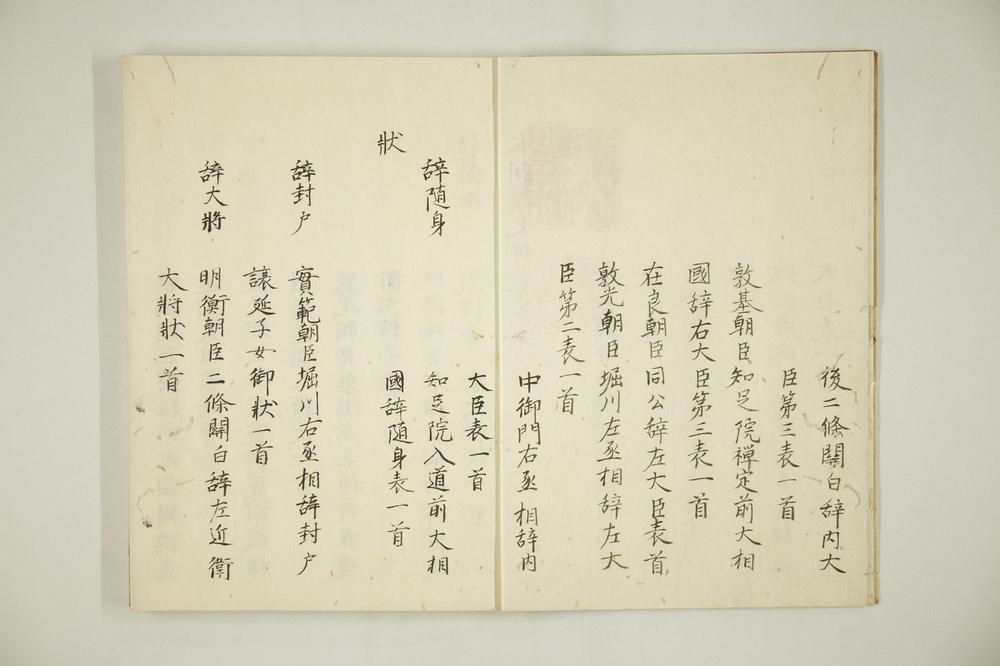 後二條關白辞内大
臣第三表一首
敦基朝臣知足院禅定前大相
國辞右大臣第三表一首
在良朝臣同公辞左大臣表首
敦光朝臣堀川左丞相辞左大
臣第二表一首
中御門右丞相辞内
大臣表一首
辞随身 知足院入道前大相
國辞随身表一首
狀
辞封户 實範朝臣堀川右丞相辞封户
譲延子女御狀一首
辞大將 明衡朝臣二條關白辞左近衛
大將狀一首